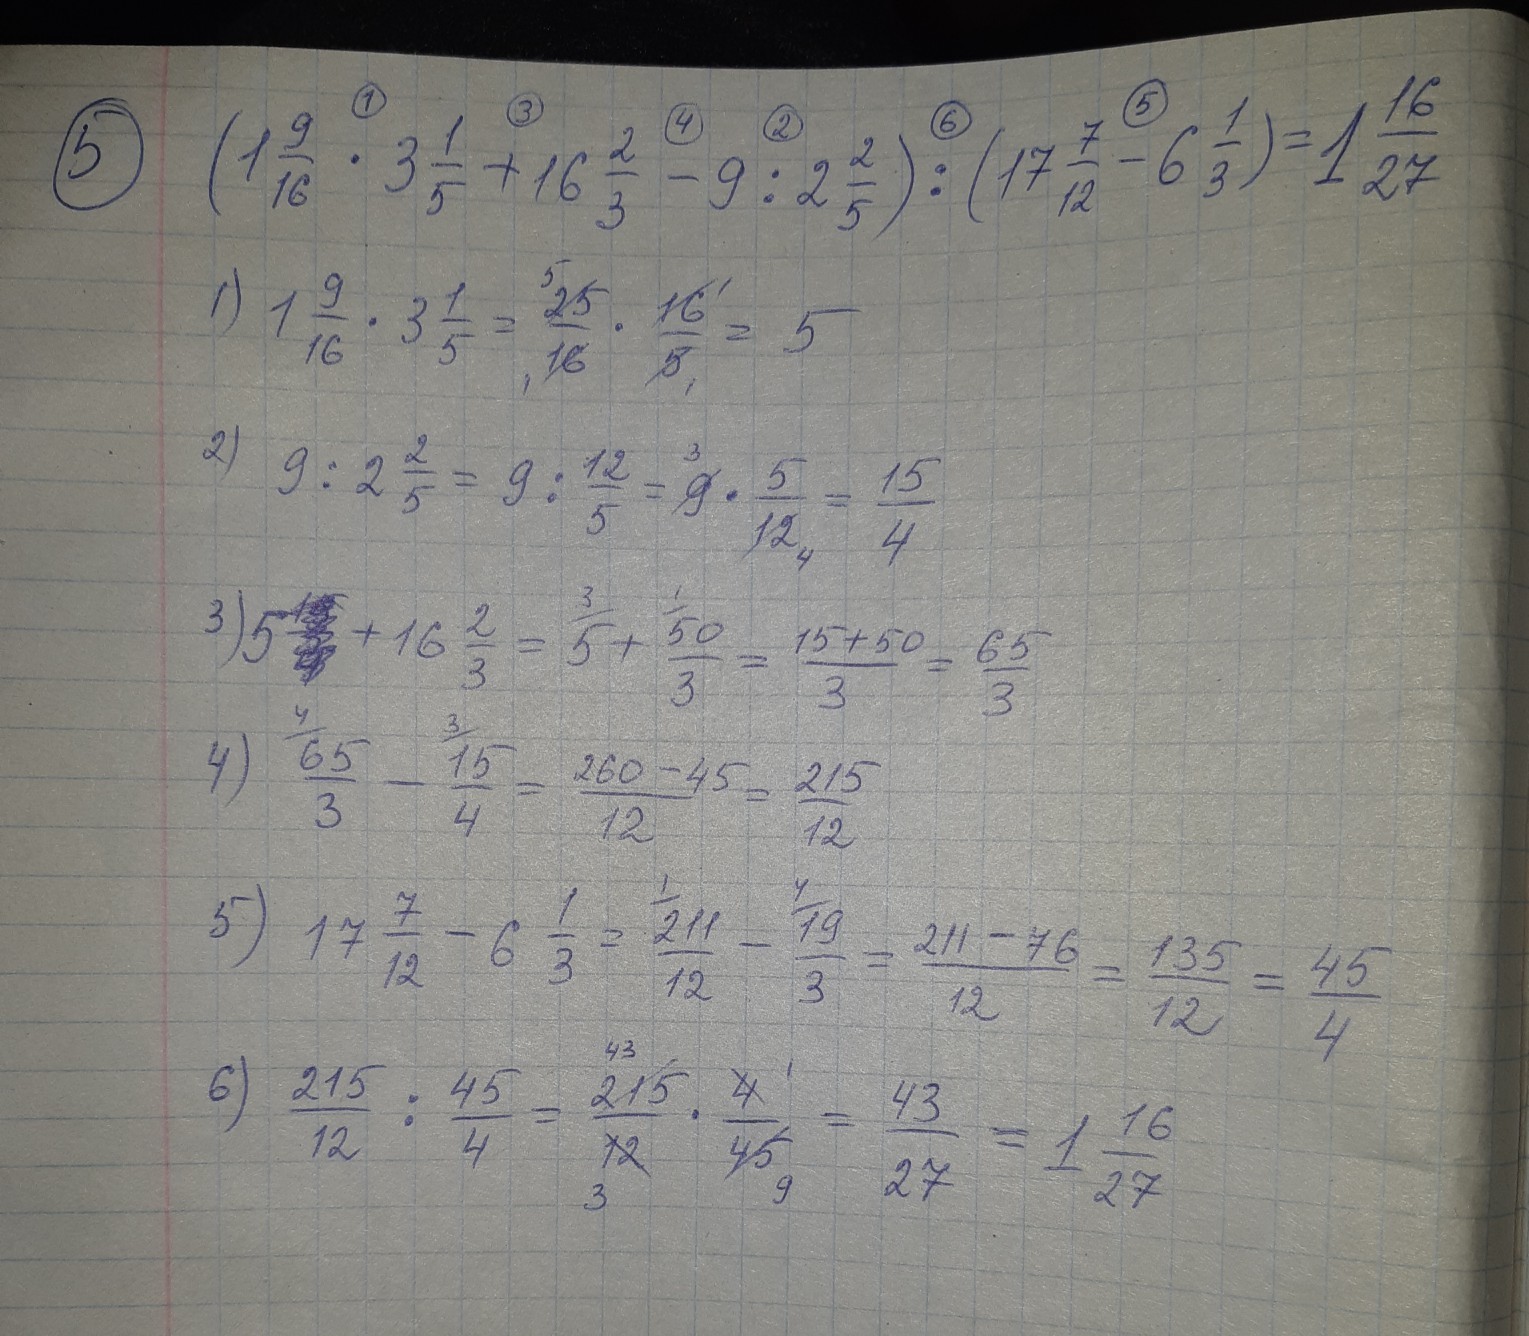 ① ③ ④ ② ⑥ ⑤
⑤ (1 9/16 · 3 1/5 + 16 2/3 - 9 : 2 2/5) : (17 7/12 - 6 1/3) = 1 16/27
1) 1 9/16 · 3 1/5 = 25/16 · 16/5 = 5
2) 9 : 2 2/5 = 9 : 12/5 = 9 · 5/12 = 15/4
3) 5 + 16 2/3 = 5 + 50/3 = 15+50/3 = 65/3
4) 65/3 - 15/4 = 260-45/12 = 215/12
5) 17 7/12 - 6 1/3 = 211/12 - 19/3 = 211-76/12 = 135/12 = 45/4
6) 215/12 : 45/4 = 215/12 · 4/45 = 43/27 = 1 16/27